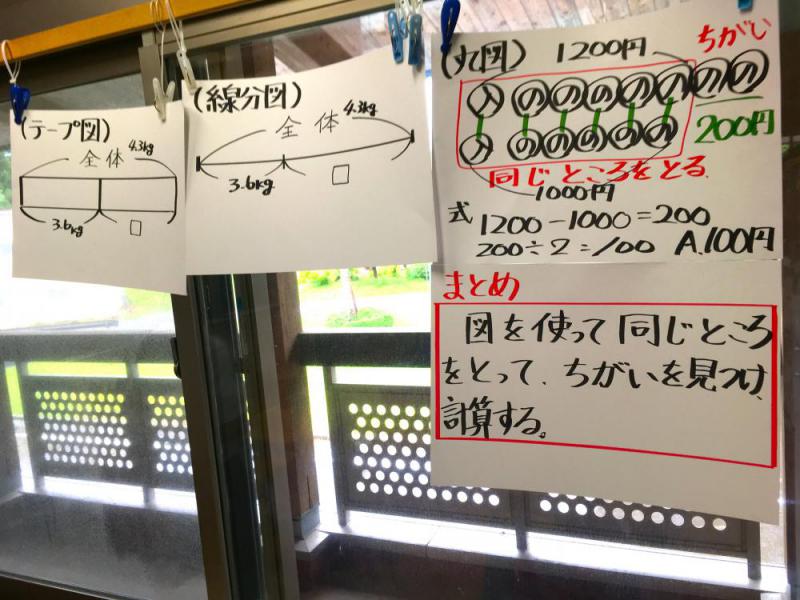 (テープ図)
全体 4.3kg
3.6kg □
(線分図)
全体 4.3kg
3.6kg □
(すて図) 1200円 ちがい
入 の の の の の の の
200円
入 の の の の の
同じところをとる
1000円
式 1200-1000=200
200÷2=100 A.100円
まとめ
図を使って同じところ
をとって、ちがいを見つけ、
計算する。